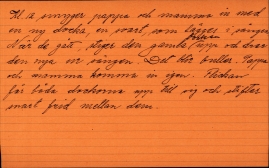 Kl. 12 smyger pappa och mamma in med
en ny docka, en svart, som lägges i sängen
När de gått, stiger den gamla dockan upp och
den nya ur sängen. Det blir buller. Pappa
och mamma komma in igen. Flickan
får båda dockorna upp till sig och stiftar
snart fred mellan dem.